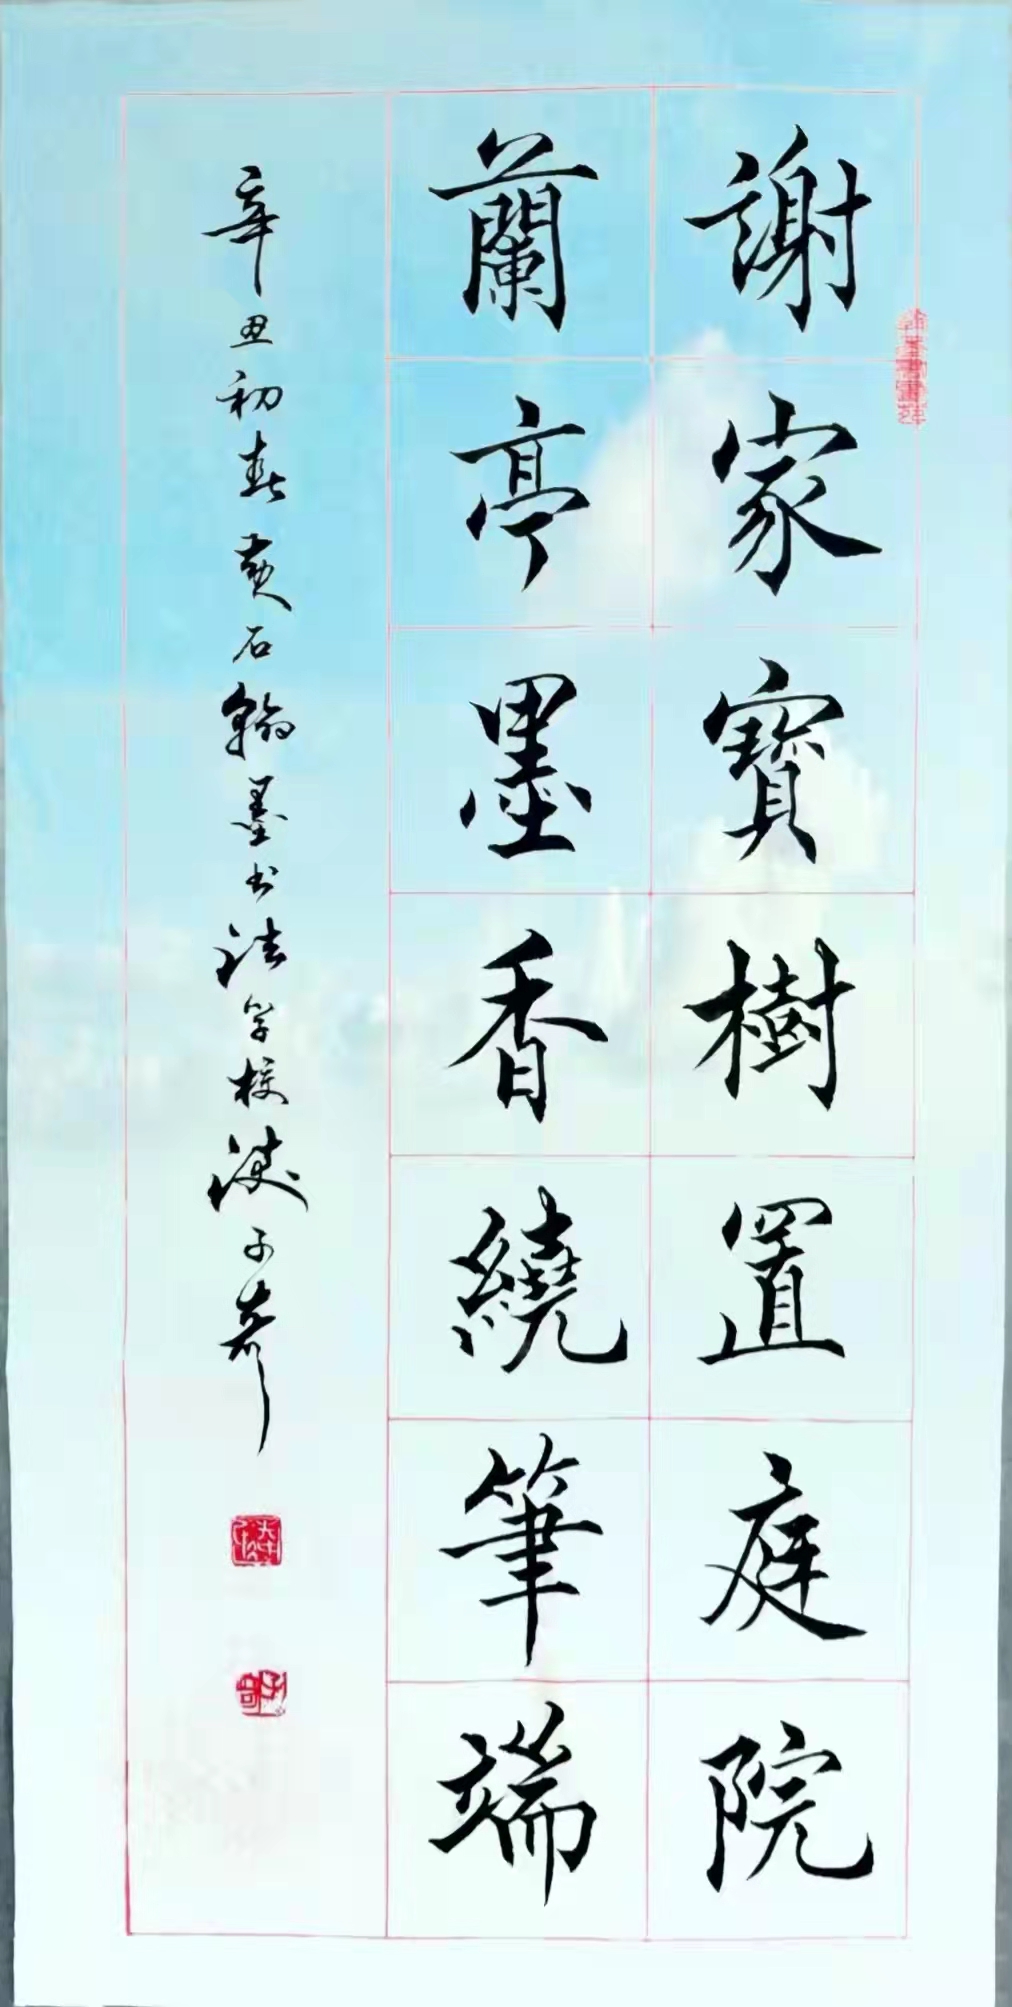 謝家寶樹置庭院
蘭亭墨香繞筆端
辛丑初春黄石翰墨书法学校 子